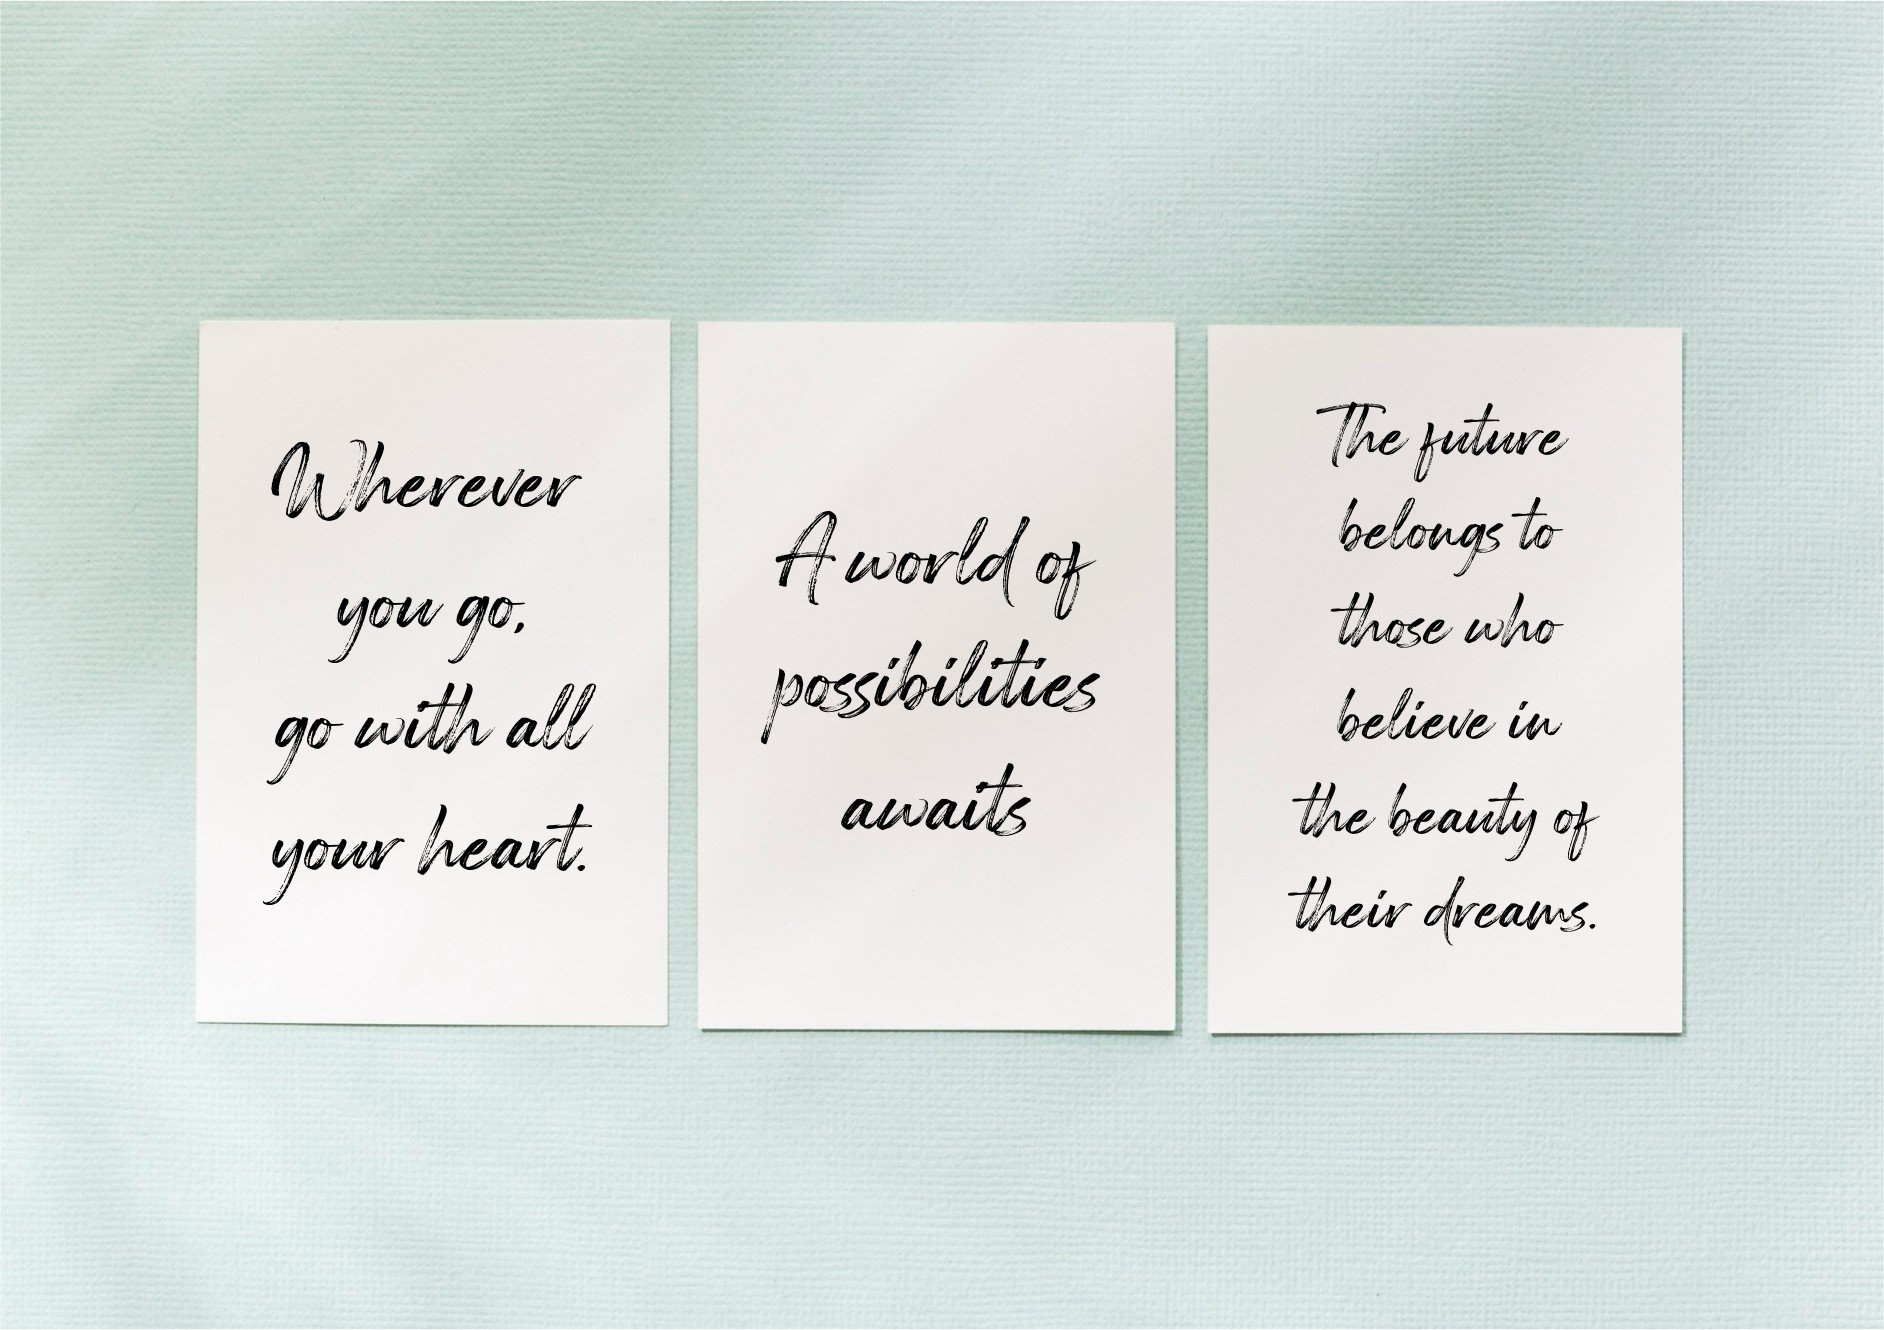 Wherever
you go,
go with all
your heart.
A world of
possibilities
awaits
The future
belongs to
those who
believe in
the beauty of
their dreams.